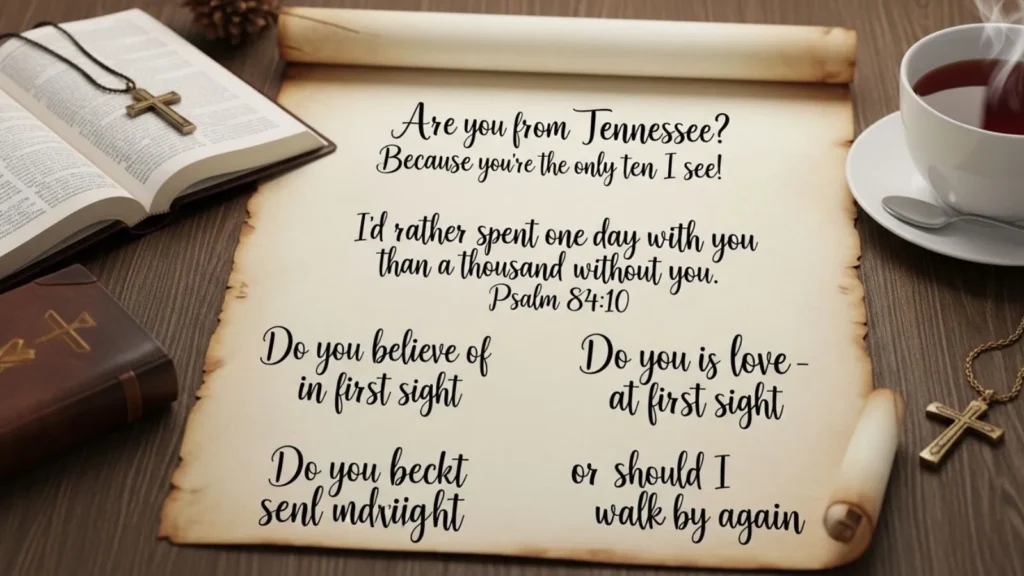 Are you from Tennessee?
Because you're the only ten I see!
I'd rather spent one day with you
than a thousand without you.
Psalm 84:10
Do you believe of
in first sight
Do you is love -
at first sight
Do you beckt
senl mdviight
or should I
walk by again